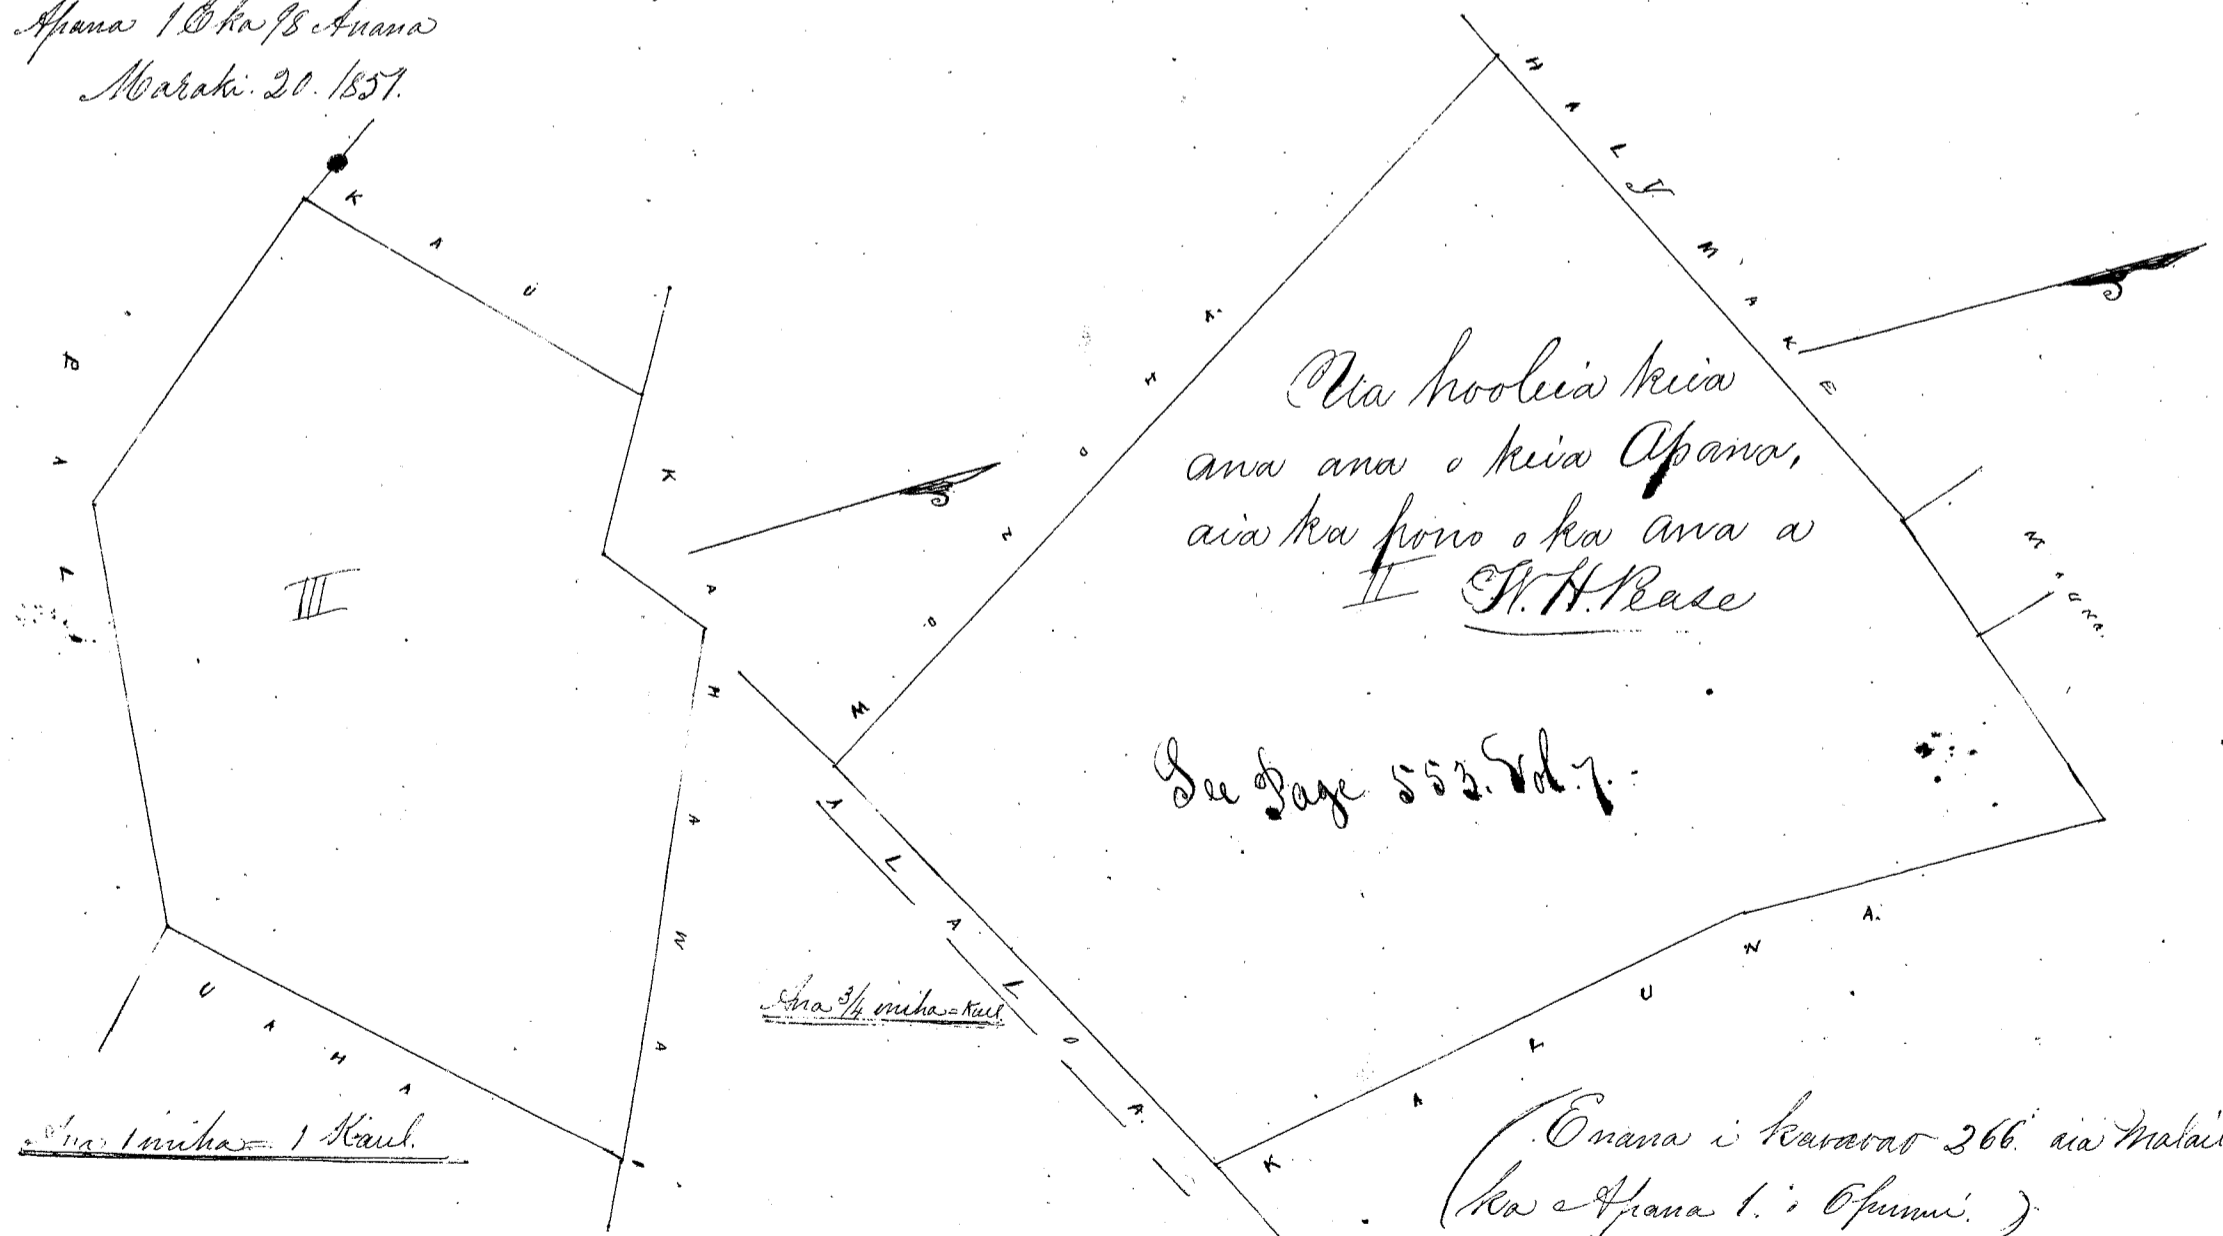 Apana 1 Eka 98 Anana
Maraki. 20. 1851.
KAU
KAHAAWAA
PALI
III
UAHA
Ana 1 iniha = 1 Kaul.
HALYMAKE
MONOHA
Ua hooleia keia
ana ana o keia Apana,
aia ka pono o ka ana a
II W. H. Pease
MAUNA.
See Page 553. Vol. 7.
ALALOA.
Ana 3/4 iniha = Kaul.
KAPUNA.
(Enana i kaaoao 266. aia malail
(ka Apana 1. o Opunui.)